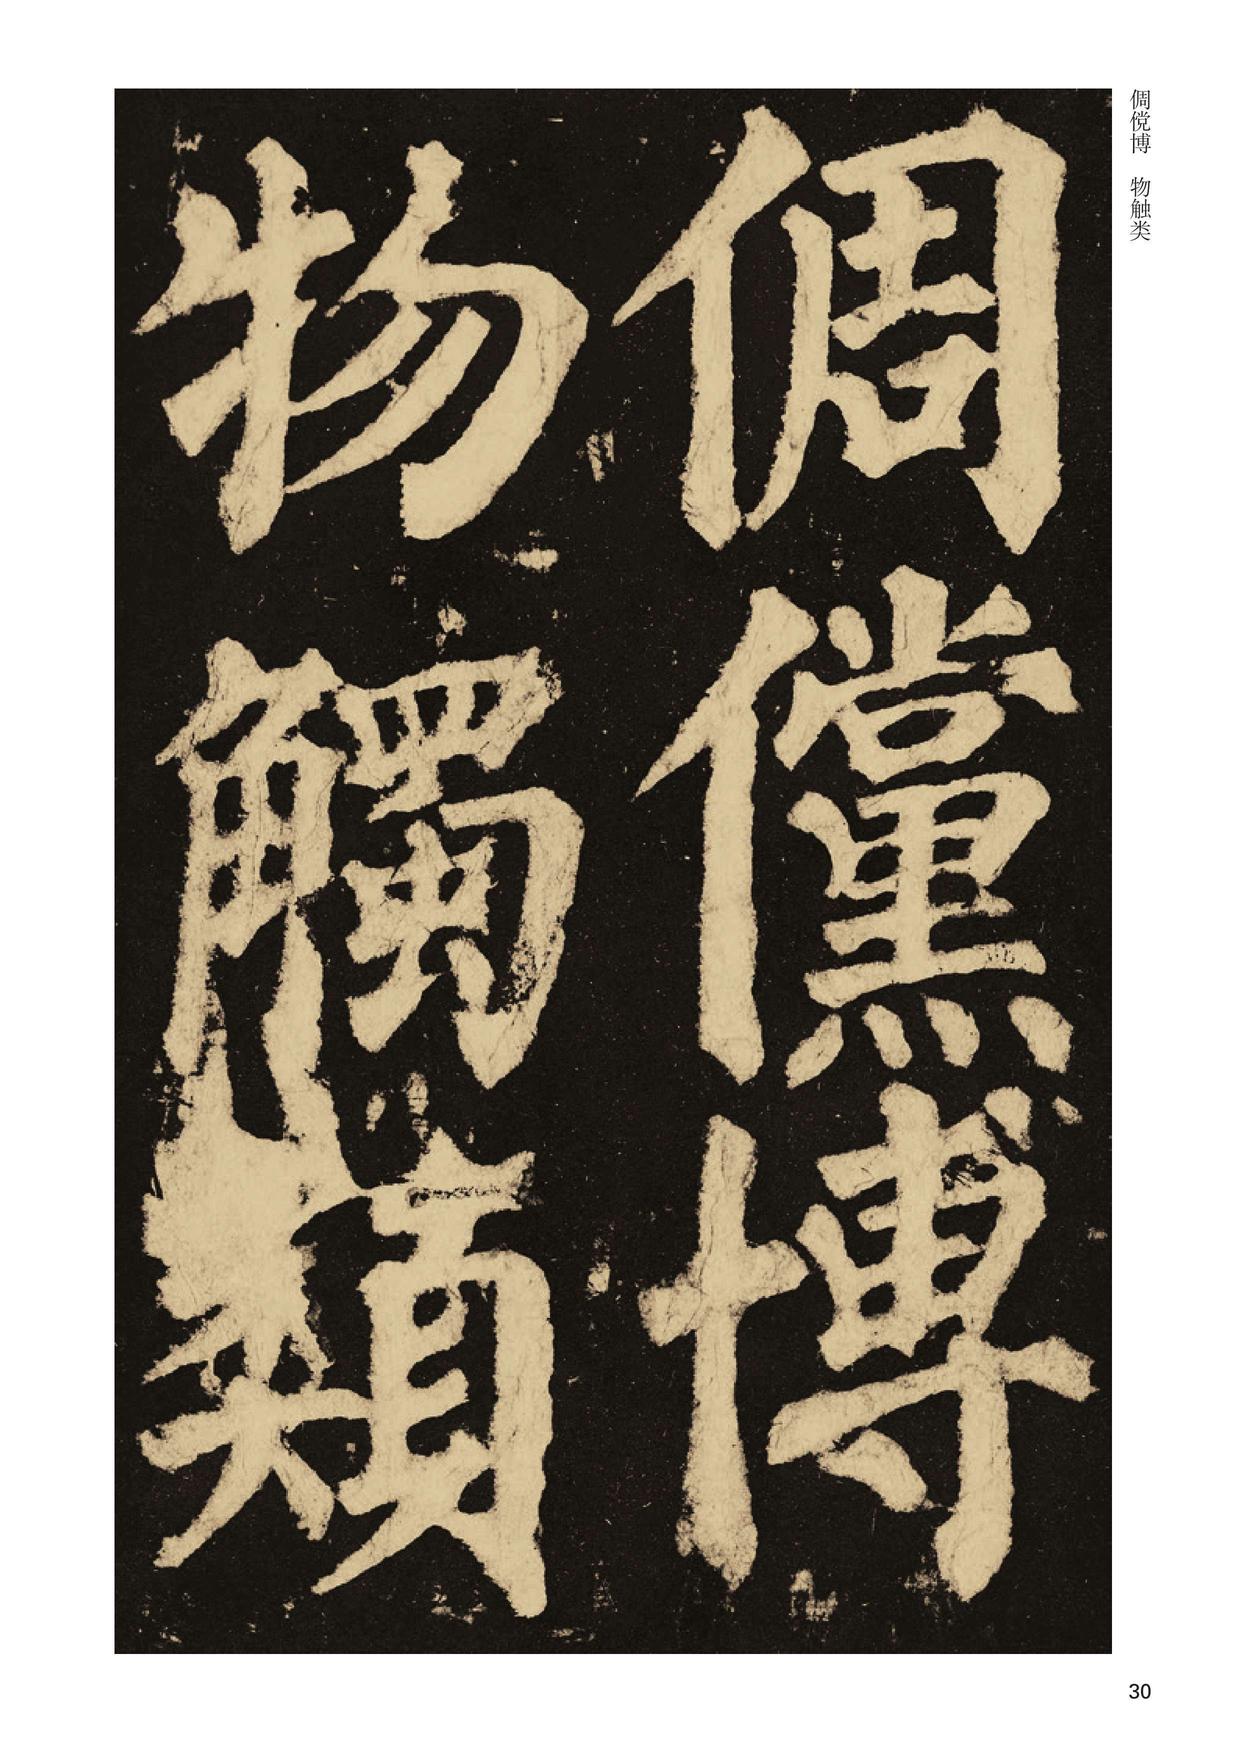 倜傥博 物触类
倜儻博
物觸類
30